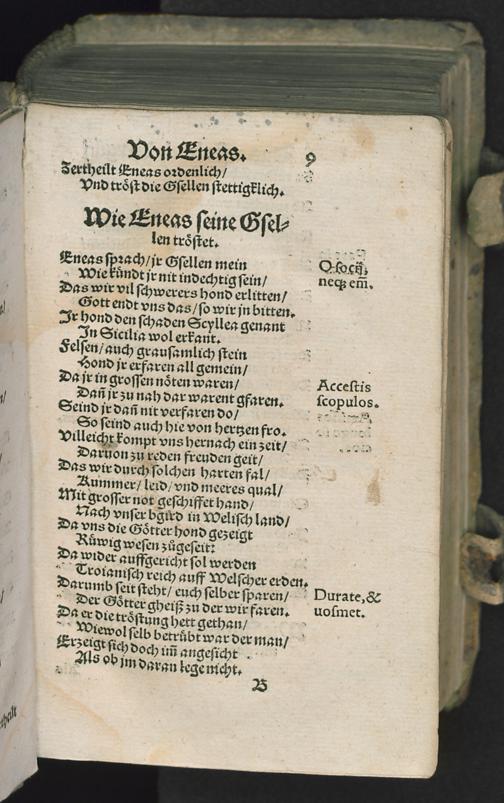 Von Eneas. 9
Zertheilt Eneas ordenlich/
Vnd tröst die Gsellen stettigklich.
Wie Eneas seine Gsel-
len tröstet.
Eneas sprach/ jr Gsellen mein
Wie kündt jr nit indechtig sein/
Das wir vil schwerers hond erlitten/
Gott endt vns das/ so wir jn bitten.
Jr hond den schaden Scyllea genant
In Sicilia wol erkant.
Felsen/ auch grausamlich stein
Hond jr erfaren all gemein/
Da jr in grossen nöten waren/
Dañ jr zu nah dar warent gfaren.
Seind jr dañ nit verfaren do/
So seind auch hie von hertzen fro.
Villeicht kompt vns hernach ein zeit/
Daruon zu reden freuden geit/
Das wir durch solchen harten fal/
Kummer/ leid/ vnd meeres qual/
Mit grosser not geschiffet hand/
Nach vnser bgird in Welisch land/
Da vns die Götter hond gezeigt
Rüwig wesen zůgeseit:
Da wider auffgericht sol werden
Troianisch reich auff Welscher erden.
Darumb seit steht/ euch selber sparen/
Der Götter gheiß zu der wir faren.
Da er die tröstung hett gethan/
Wiewol selb betrübt war der man/
Erzeigt sich doch im̄ angesicht
Als ob jm daran lege nicht.
B
O socij,
neqꝫ em̄.
Accestis
scopulos.
Durate, &
uosmet.